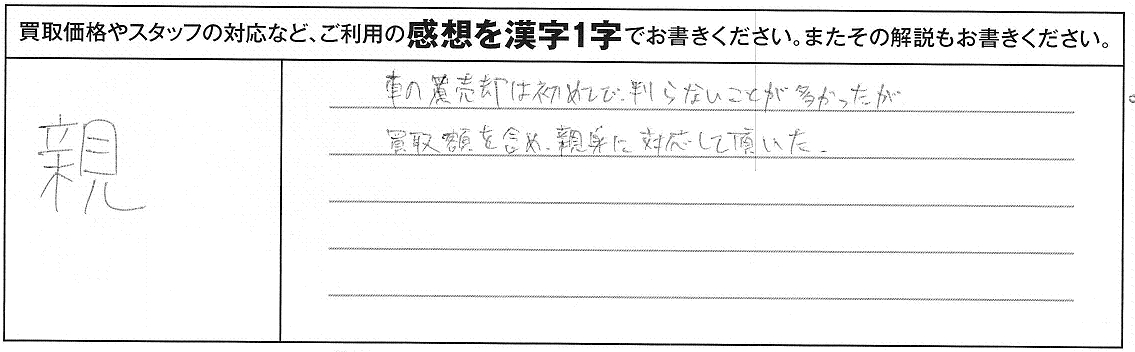 買取価格やスタッフの対応など、ご利用の感想を漢字1字でお書きください。またその解説もお書きください。
親
車の買売却は初めてで、判らないことが多かったが
買取額を含め、親身に対応して頂いた。